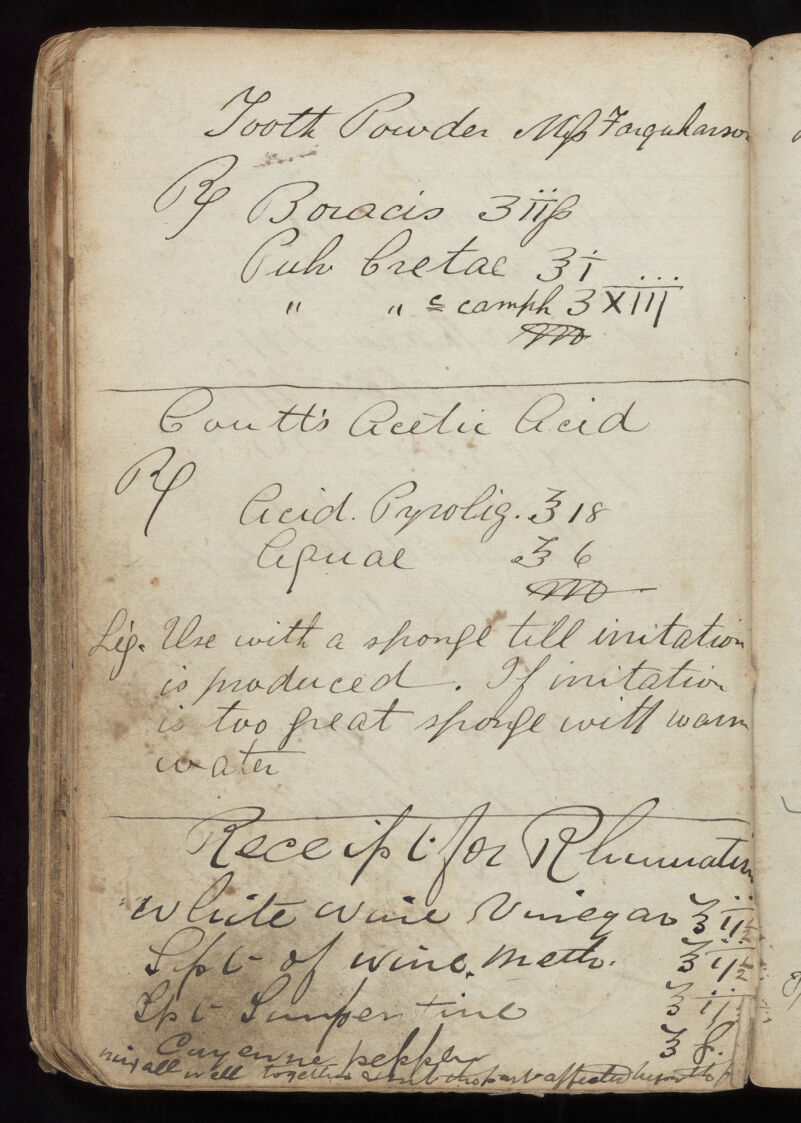 Tooth Powder Miſs Farquharson
℞ Boracis ʒ iiſs
Pulv Cretae ʒ i
" " c̄ camph ʒ XIII
M
Coutt's Acetic Acid
℞
Acid. Pyrolig. ℥ 18
Aquae ℥ 6
M
Sig. Use with a sponge till irritation
is produced. If irritation
is too great sponge with warm
water
Receipt for Rhumatism
White wine Vinegar ℥ ii½
Spt of wine. Meth. ℥ i½
Spt Turpentine ℥ ii
Cayenne pepper ℥
mix all well together & rub the part affected